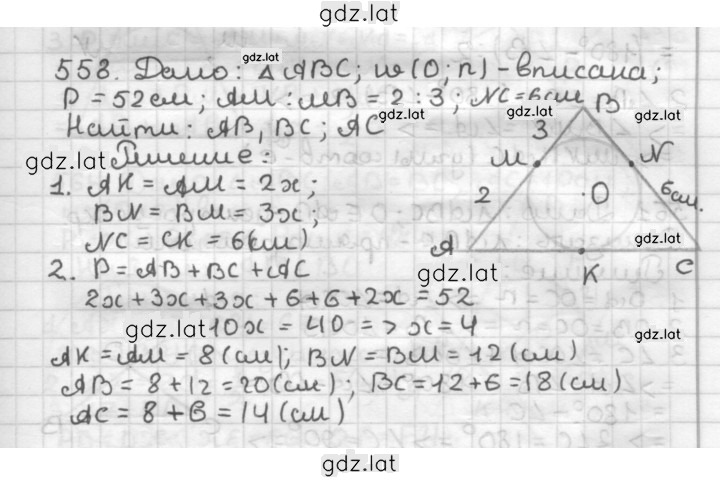 gdz.lat
558. Дано: △ABC; w(O; r) - вписана;
gdz.lat
P = 52см; AM : MB = 2 : 3; NC = 6см
gdz.lat
gdz.lat
Найти: AB, BC; AC
gdz.lat
gdz.lat Решение:
1. AK = AM = 2x;
BN = BM = 3x;
NC = CK = 6(см)
2. P = AB + BC + AC
2x + 3x + 3x + 6 + 6 + 2x = 52
gdz.lat 10x = 40 => x = 4
AK = AM = 8 (см); BN = BM = 12 (см)
AB = 8 + 12 = 20(см); BC = 12 + 6 = 18 (см)
AC = 8 + 6 = 14 (см)
B
3
M
N
2
O
6см.
A
gdz.lat
C
gdz.lat
K
gdz.lat
gdz.lat